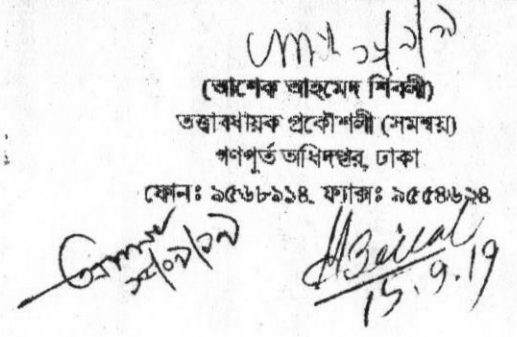 ১৫/৯/১৯
(আশেক আহমেদ শিবলী)
তত্ত্বাবধায়ক প্রকৌশলী (সমন্বয়)
গণপূর্ত অধিদপ্তর, ঢাকা
ফোনঃ ৯৫৬৮৯১৪, ফ্যাক্সঃ ৯৫৫৪৬২৪
১৫/০৯/১৯
15.9.19